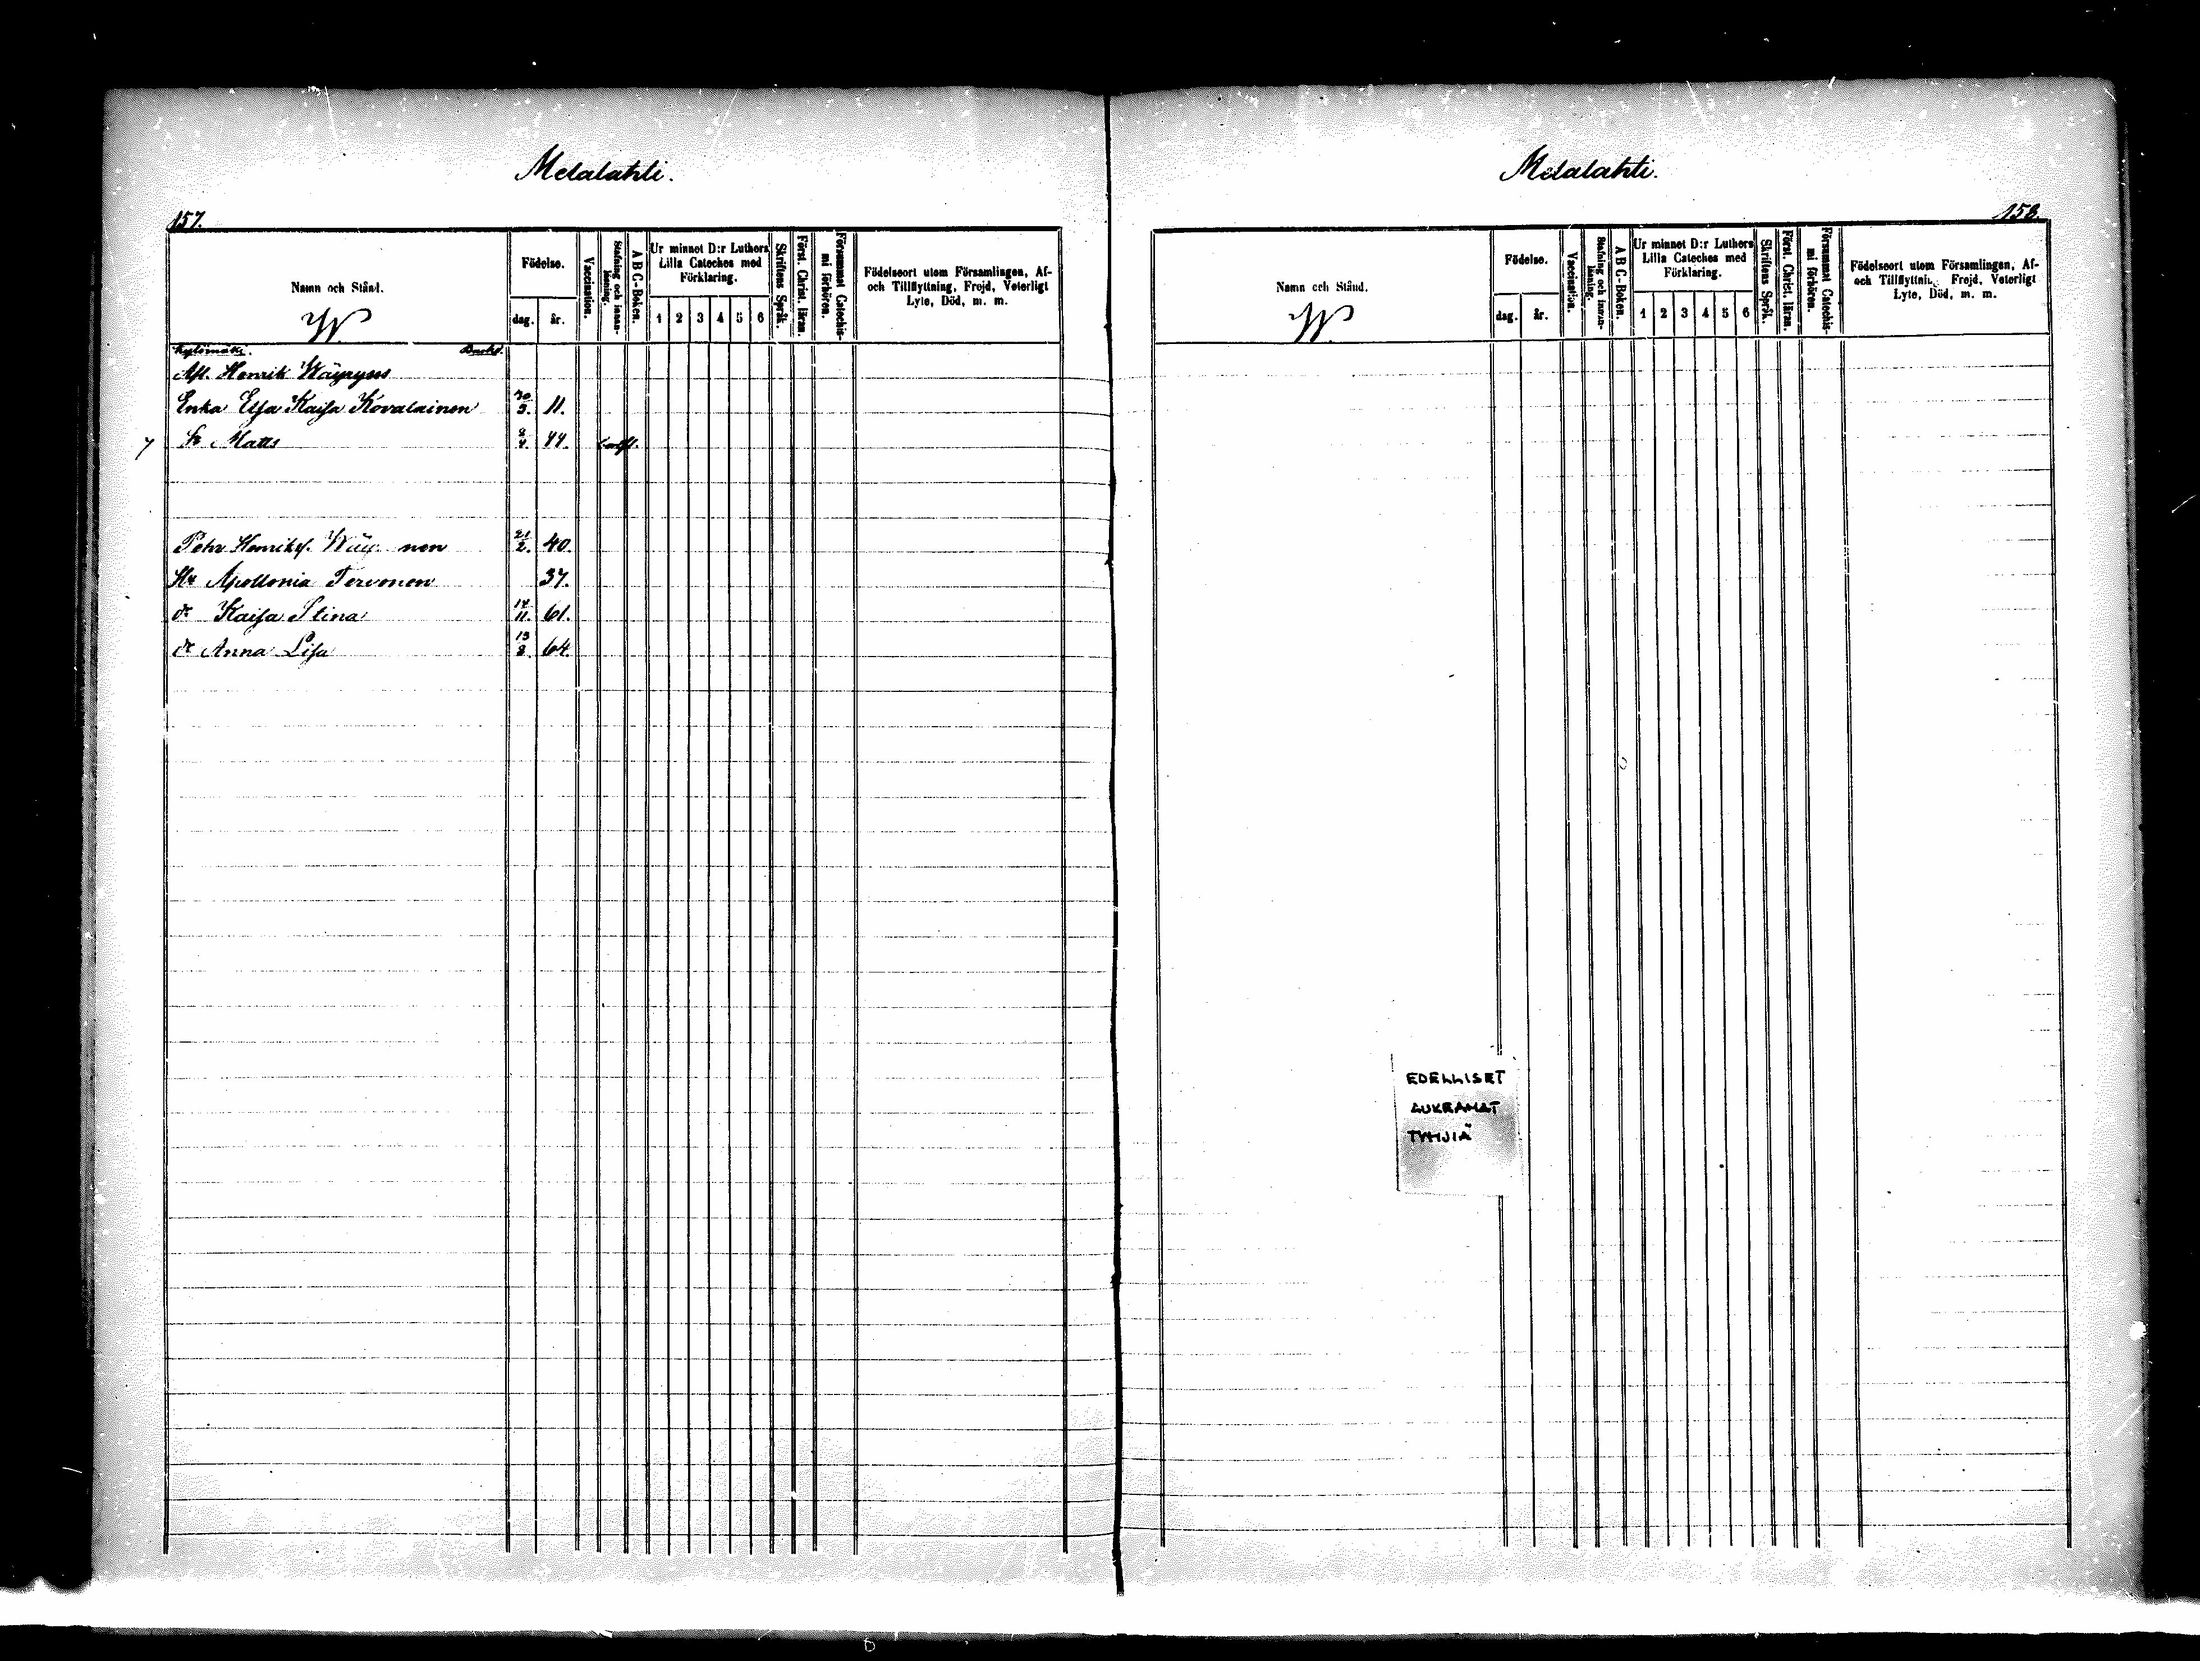 Melalahti.
157.
Namn och Stånd.
W.
Födelse.
dag.
år.
Vaccination.
Stafning och innan-
läsning.
A B C-Boken.
Ur minnet D:r Luthers
Lilla Cateches med
Förklaring.
1 2 3 4 5 6
Skriftens Språk.
Först. Christ. läran.
Försummat Catechis-
mi förhören.
Födelseort utom Församlingen, Af-
och Tillflyttning, Frejd, Veterligt
Lyte, Död, m. m.
Kylömäki.
Afl. Henrik Wäyryses
Enka Elsa Kaisa Kovalainen 30/3. 11.
Sr Matts 2/4. 44.
Pehr Henriks. Wäy nen 21/2. 40.
Hu Apollonia Tervonen 37.
dr Kaisa Stina 14/11. 61.
dr Anna Lisa 13/8. 64.
Melalahti.
158.
Namn och Stånd.
W.
Födelse.
dag.
år.
Vaccination.
Stafning och innan-
läsning.
A B C-Boken.
Ur minnet D:r Luthers
Lilla Cateches med
Förklaring.
1 2 3 4 5 6
Skriftens Språk.
Först. Christ. läran.
Försummat Catechis-
mi förhören.
Födelseort utom Församlingen, Af-
och Tillflyttning, Frejd, Veterligt
Lyte, Död, m. m.
EDELLISET
AUKEAMAT
TYHJIÄ